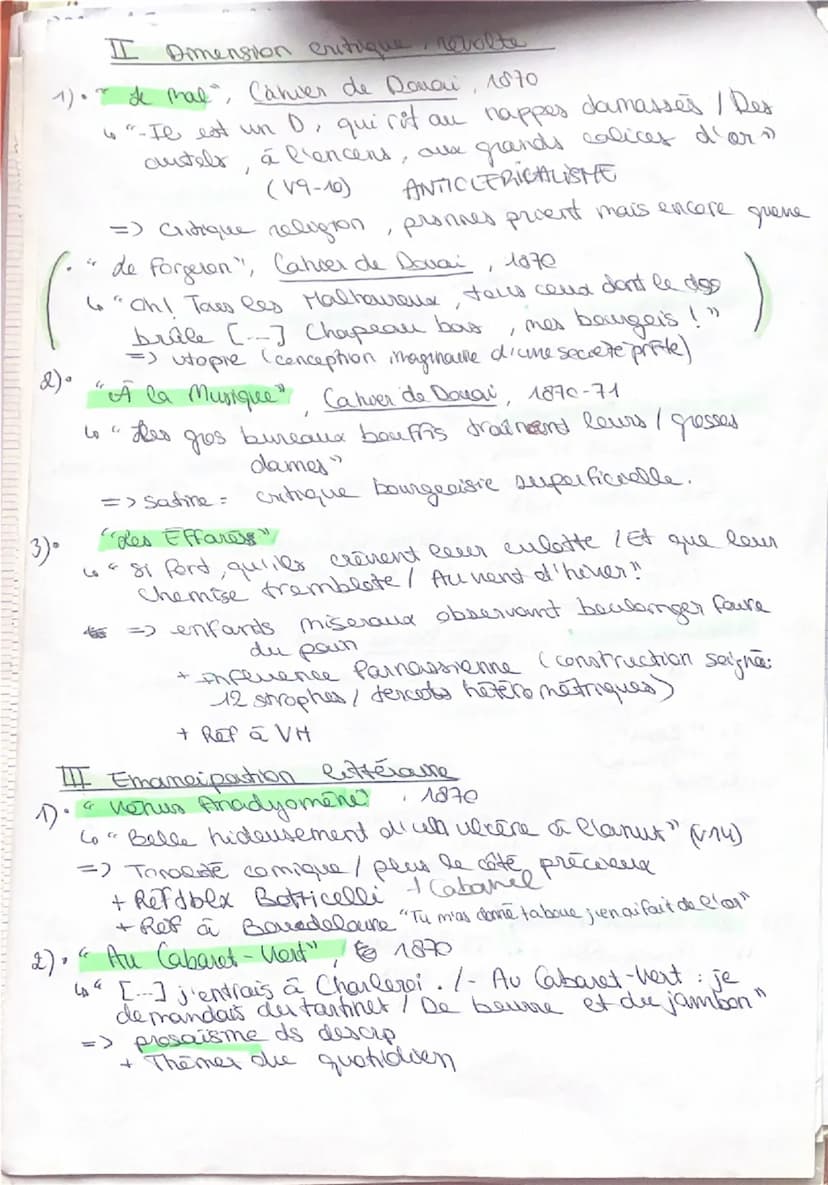 II Dimension critique, révolte
1) • "Le Mal", Cahier de Douai, 1870
↳ "- Il est un D, qui rit au nappes damassés / Des
autels, à l'encens, aux grands calices d'or"
(V9-10) ANTICLERICALISME
=> Critique religion, pronnes prient mais encore guerre
( • "Le Forgeron", Cahier de Douai, 1870
↳ "Oh! Tous les Malheureux, tous ceux dont le dos
brûle [...] Chapeau bas, mes bourgeois !"
=> utopie (conception imaginaire d'une société pfte) )
2) • "À la Musique", Cahier de Douai, 1870-71
↳ "Les gros bureaux bouffis traînent leurs / grosses
dames"
=> Satire = critique bourgeoisie superficielle.
3) • "Les Effarés"
↳ "si fort, qu'ils crèvent leur culotte / Et que leur
chemise tremblote / Au vent d'hiver."
=> enfants miséraux observant boulanger faire
du pain
+ influence Parnassienne (construction soignée:
12 strophes / tercets hétérométriques)
+ Réf à VH
III Emancipation littéraire
1) • "Vénus Anadyomène", 1870
↳ "Belle hideusement d'un ulcère à l'anus" (v14)
=> Tonalité comique / plus le côté précieux
+ Réf dblx Botticelli + Cabanel
+ Réf à Baudelaire "Tu m'as donné ta boue j'en ai fait de l'or"
2) • "Au Cabaret-Vert", 1870
↳ "[...] j'entrais à Charleroi. / - Au Cabaret-Vert : je
demandais des tartines / De beurre et du jambon"
=> prosaïsme ds descrip
+ Thèmes du quotidien